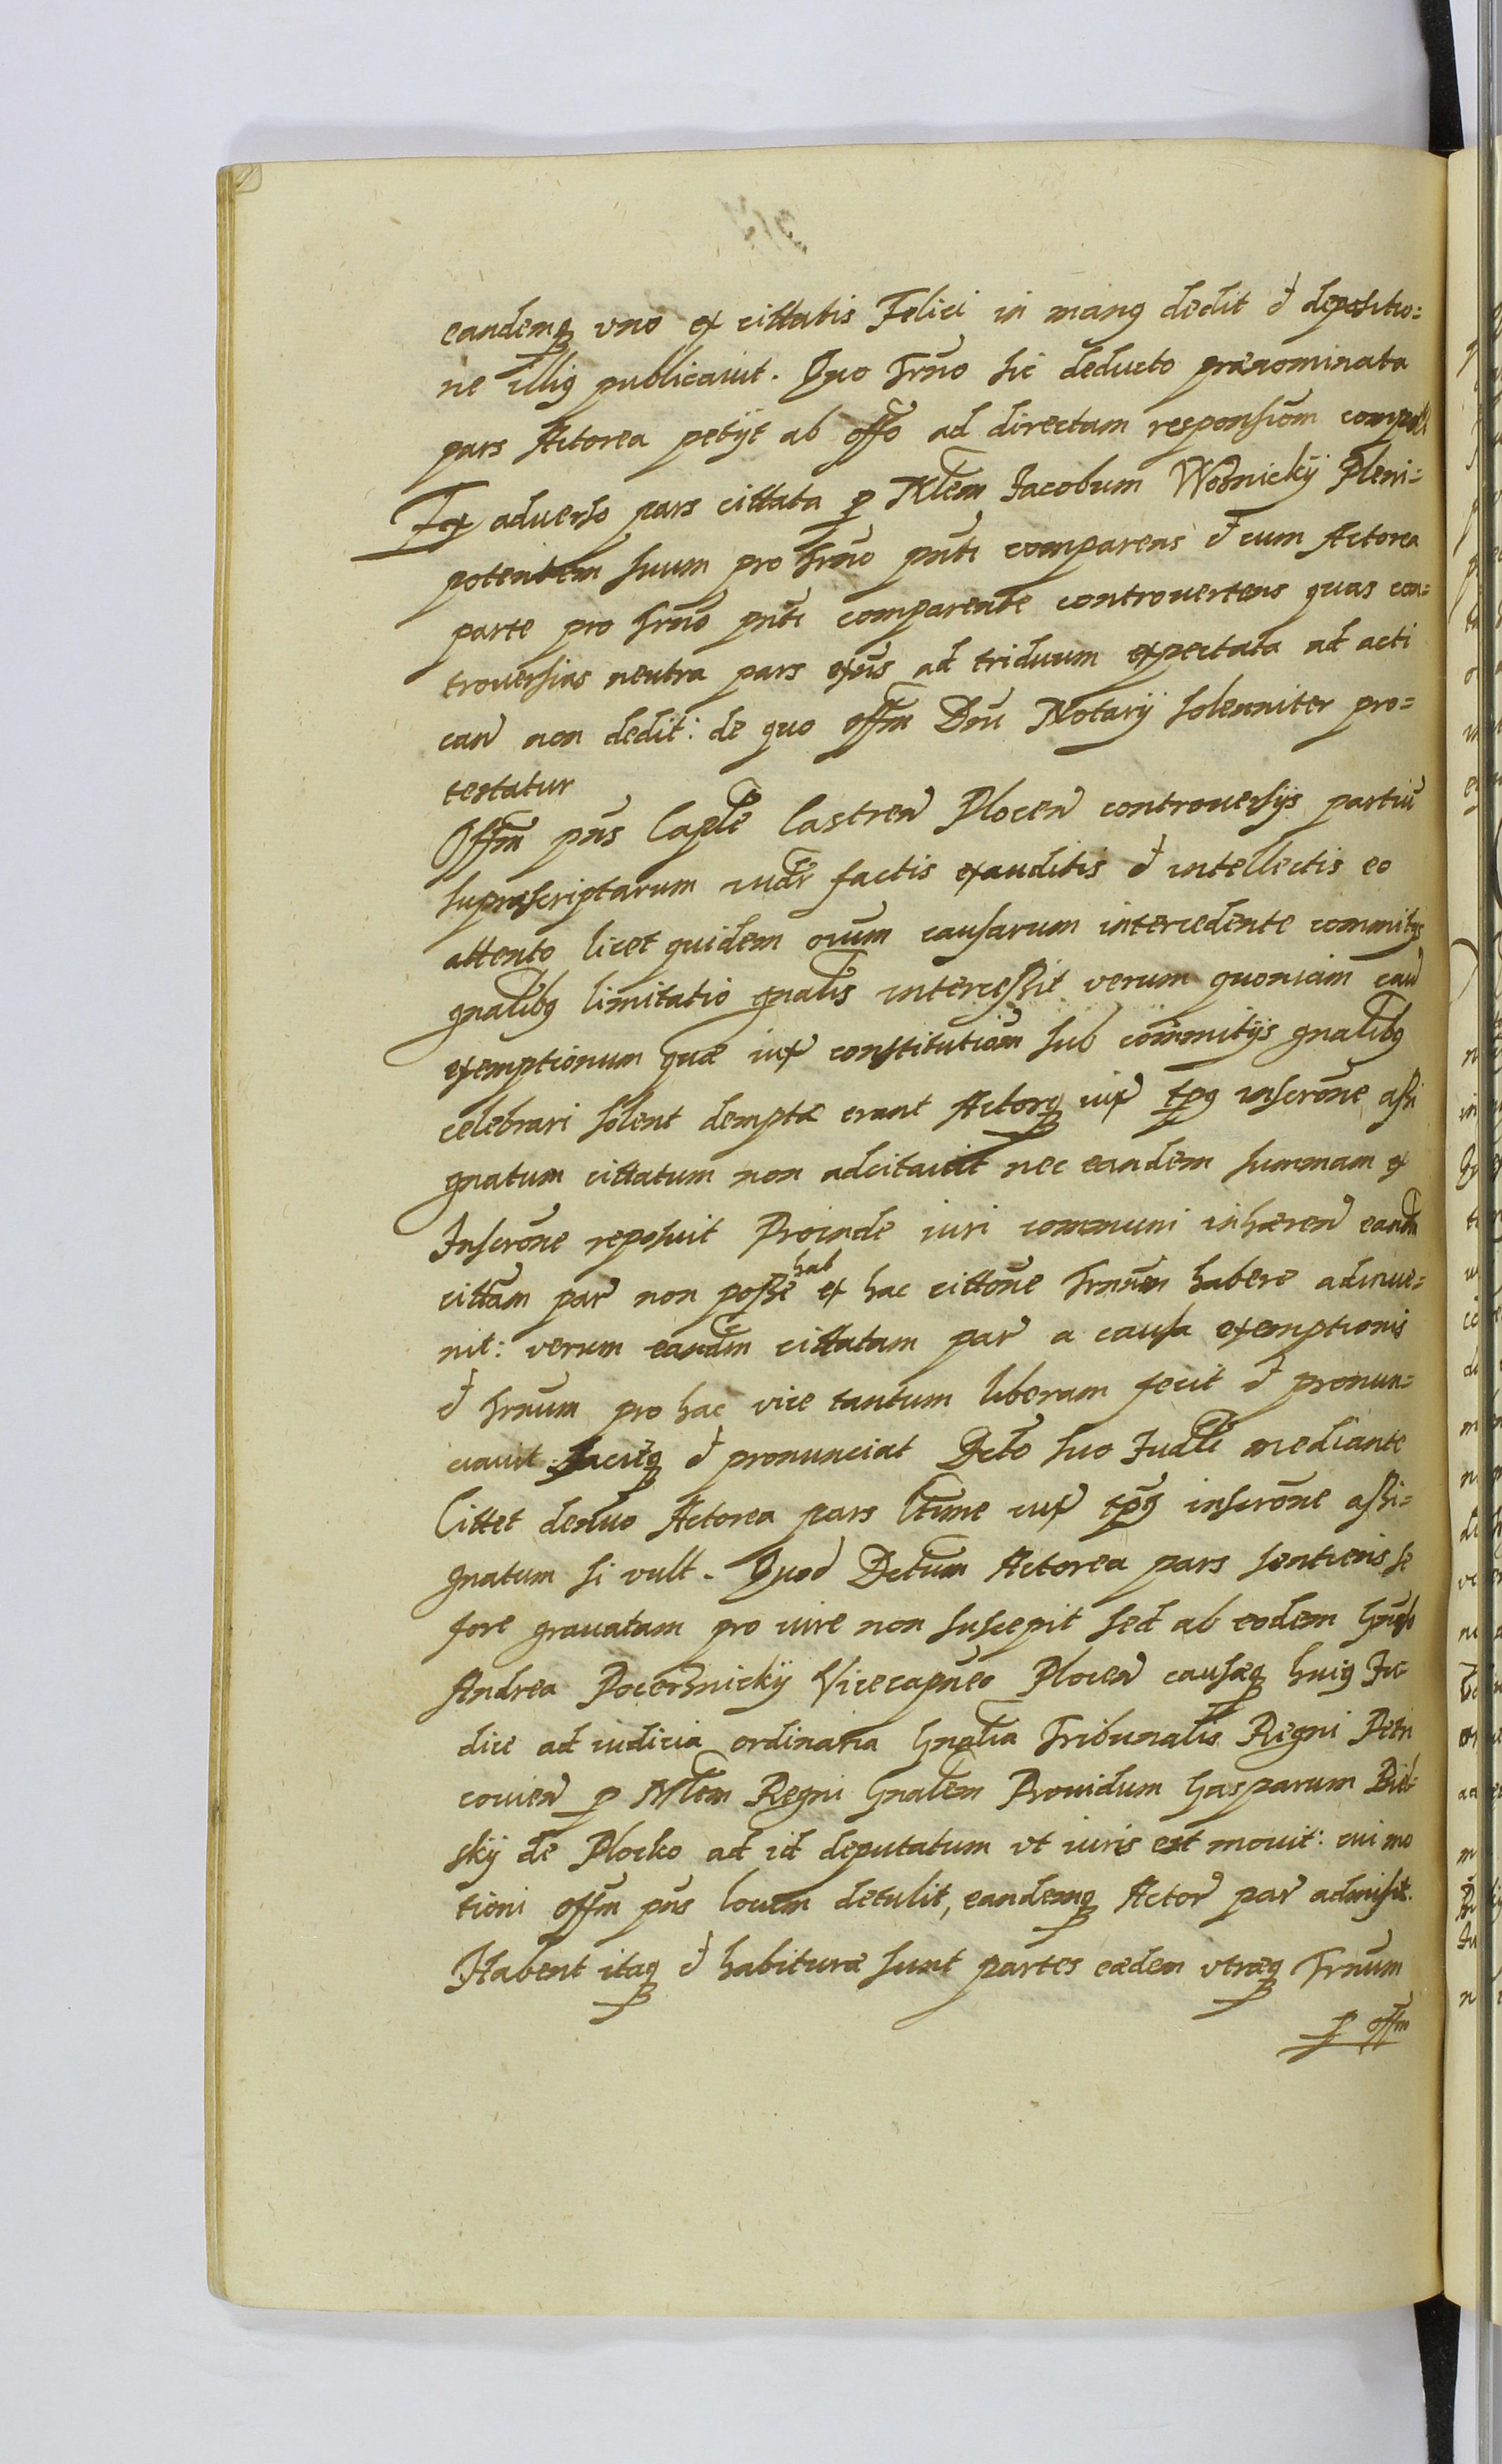 eandemq̃ vno ex cittatis Felici in manus dedit et depositio=
ne illius publicavit. Quo Trno sic deducto prænominata
pars Actorea petijt ab offo ad directam responsiom
Ex aduerso pars cittata p Nlem Jacobum Woznickÿ Pleni=
potentem suum pro Trno pnti comparens et cum Actorea
parte pro trno pnti comparente controuertens quas con=
trouersias neutra pars ad triduum expectata ad acti
can non dedit: de quo offm Dni Notarij solenniter pro=
testatur
Offm pns Caple Castren Plocen controuersijs partiũ
suprascriptarum iudr factis exauditis et intellectis eo
attento licet quidem oium causarum intercedente commitijs
gnalibus limitatio gnalis intercessit verum quoniam cau
exemptionum quæ iux constitutiom sub commitijs gnalibus
celebrari solent demptæ erant Actorq̃ iux tpus inscrone assi
gnatum cittatum non adcitauit nec eandem summam ex
Inscrone reposuit Proinde iuri communi inhæren eandm
cittam par non posse hab ex hac cittone Trnum habere adinue=
nit: verum eandm cittatam par a causa exemptionis
et trnum pro hac vice tantum liberam fecit et pronun=
ciauit facitq̃ et pronunciat Dcto suo Judli mediante
Cittet denuo Actorea pars iux tpus inscrone assi=
gnatum si vult. Quod Dctum Actorea pars sentiens se
fore grauatam pro iure non suscepit sed ab eodem
Andrea Pocersnickÿ Vicecapneo Plocen causæq̃ huius Ju
dice ad iudicia ordinaria Gnalia Tribunalis Regni Petri
couien p Mlem Regni Gnalem Prouidum Gasparum Biel=
skÿ de Plocko ad id deputatum vt iuris est mouit: cui mo
tioni offm pns locum detulit, eandemq̃ Actor par admisit.
Habent itaq̃ et habituræ sunt partes eædem vtræq̃ Trnum
p offm